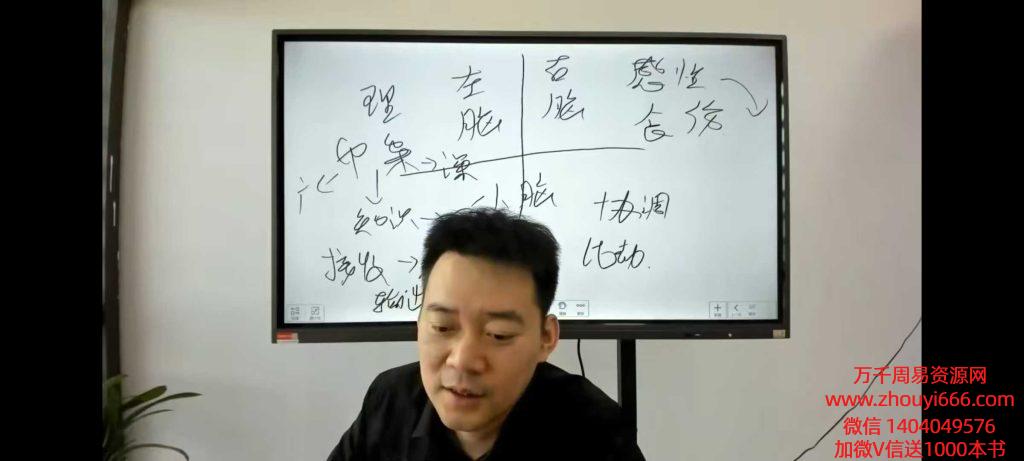 左 右
理 脑 脑 感性
食伤
印枭→课
知识→ 小脑 协调
比劫
接收→
输送
万千周易资源网
www.zhouyi666.com
微信 1404049576
加微V信送1000本书